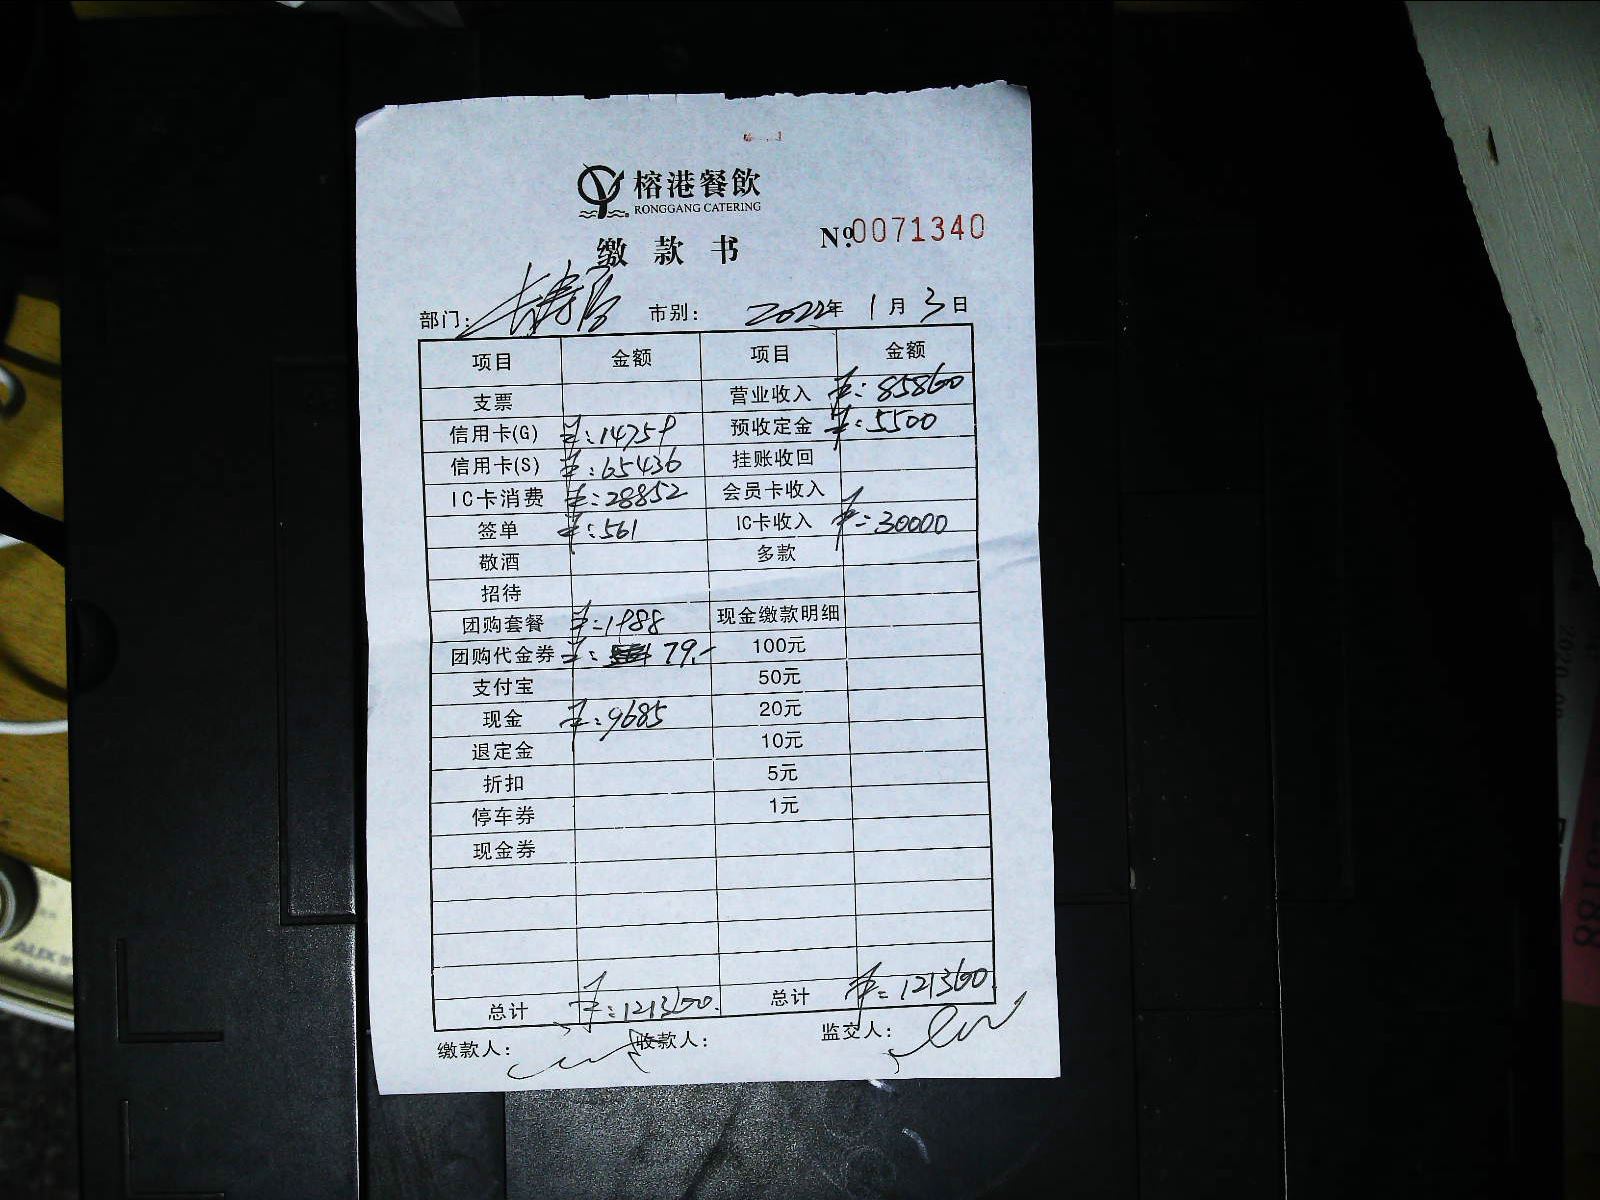 榕港餐飲
RONGGANG CATERING
缴款书 №0071340
部门: 长寿 市别: 2022年 1月 3日
项目 金额 项目 金额
支票 营业收入 ¥:85860
信用卡(G) ¥:14759 预收定金 ¥:5500
信用卡(S) ¥:65436 挂账收回
IC卡消费 ¥:28852 会员卡收入
签单 ¥:561 IC卡收入 ¥:30000
敬酒 多款
招待
团购套餐 ¥:1988 现金缴款明细
团购代金券 ¥: 79.- 100元
支付宝 50元
现金 ¥:9685 20元
退定金 10元
折扣 5元
停车券 1元
现金券
总计 ¥:121360. 总计 ¥:121360.
缴款人: 收款人: 监交人: